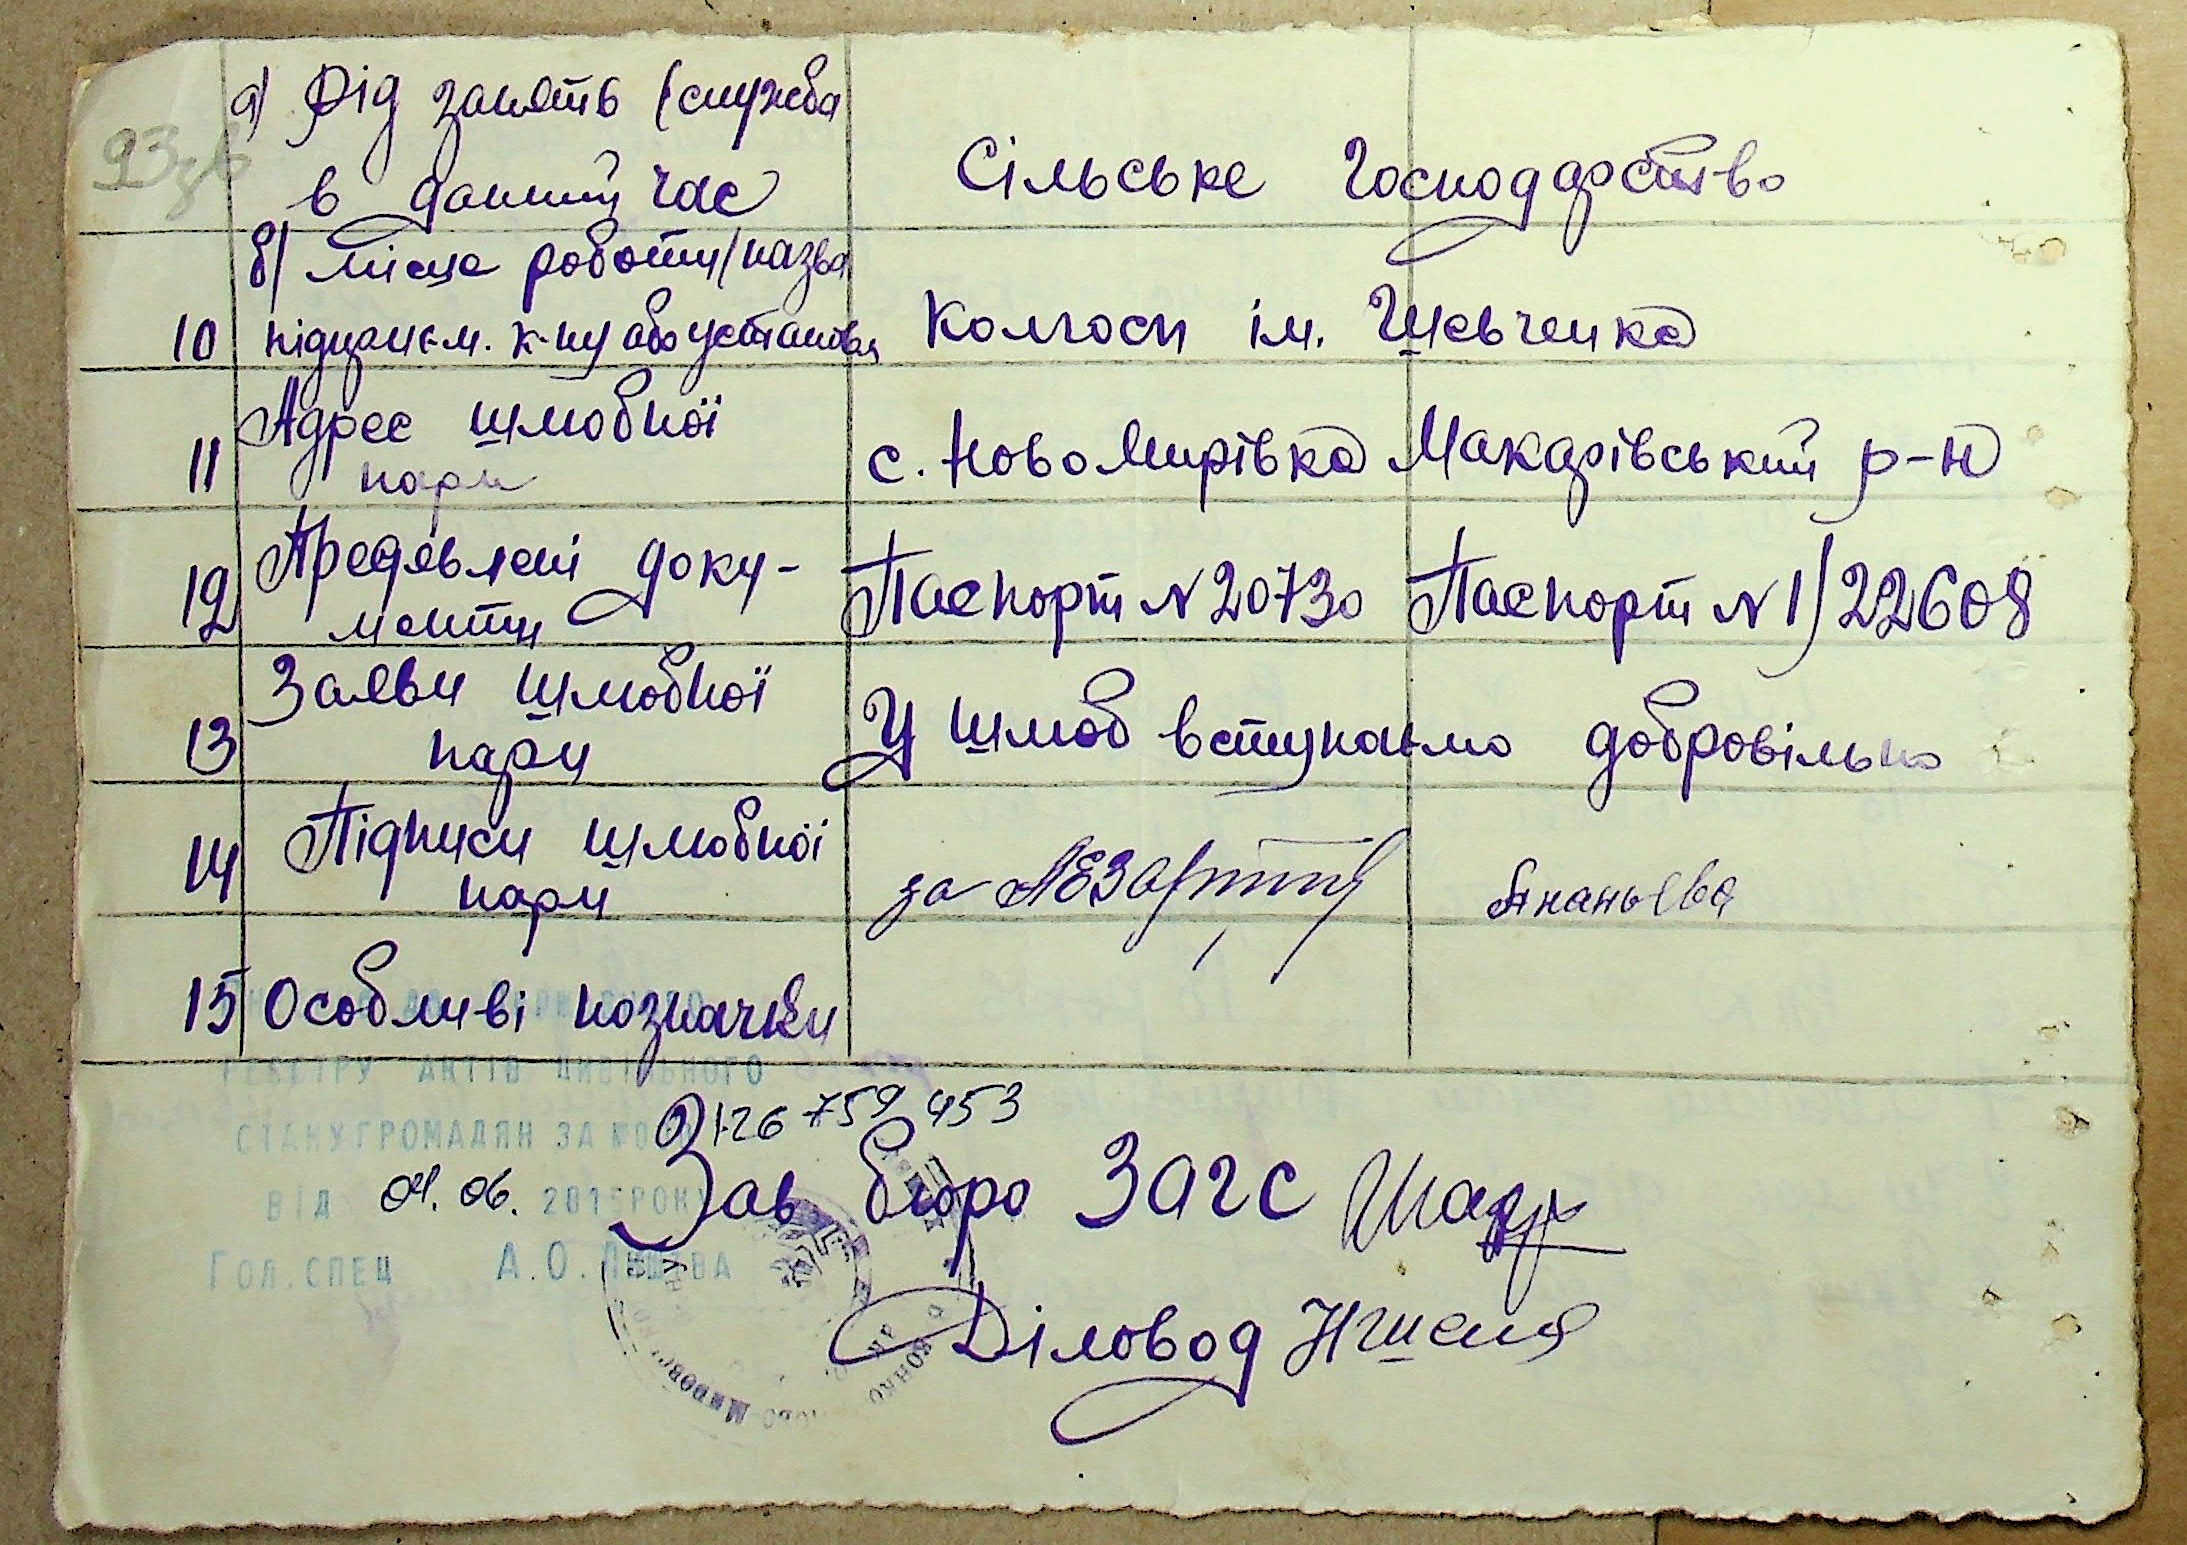 93зв
а) Рід занять (служба
в даний час
Сільське Господарство
б) місце роботи (назва
10 підприєм. к-пу або установи
Колгосп ім. Шевченка
Адрес шлюбної
11 пари
с. Новомирівка Макарівський р-н
Предявлені доку-
12 менти
Паспорт N 20730 Паспорт N 1) 22608
Заяви шлюбної
13 пари
У шлюб вступаємо добровільно
Підписи шлюбної
14 пари
за Ананьєва
15 Особливі позначки
РЕЄСТРУ АКТІВ ЦИВІЛЬНОГО
СТАНУ ГРОМАДЯН ЗА
126 759 453
ВІД 04.06. 2015 РОКУ
Зав бюро ЗАГС
ГОЛ.СПЕЦ А.О.
Діловод